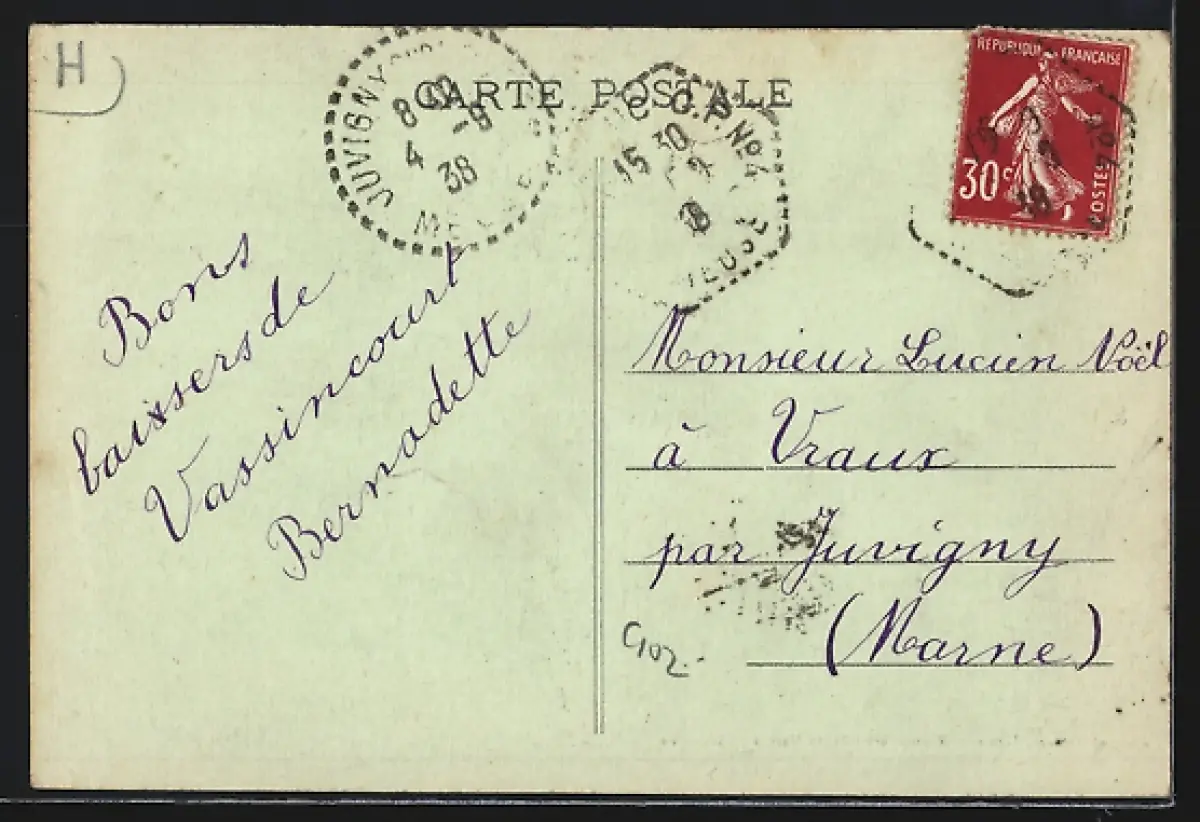 H
CARTE POSTALE
JUVIGNY
8
4
38
C.P.N°4
15 30
MEUSE
RÉPUBLIQUE FRANÇAISE
30c
POSTES
Bons
baisers de
Vassincourt
Bernadette
Monsieur Lucien Noël
à Vraux
par Juvigny
(Marne)